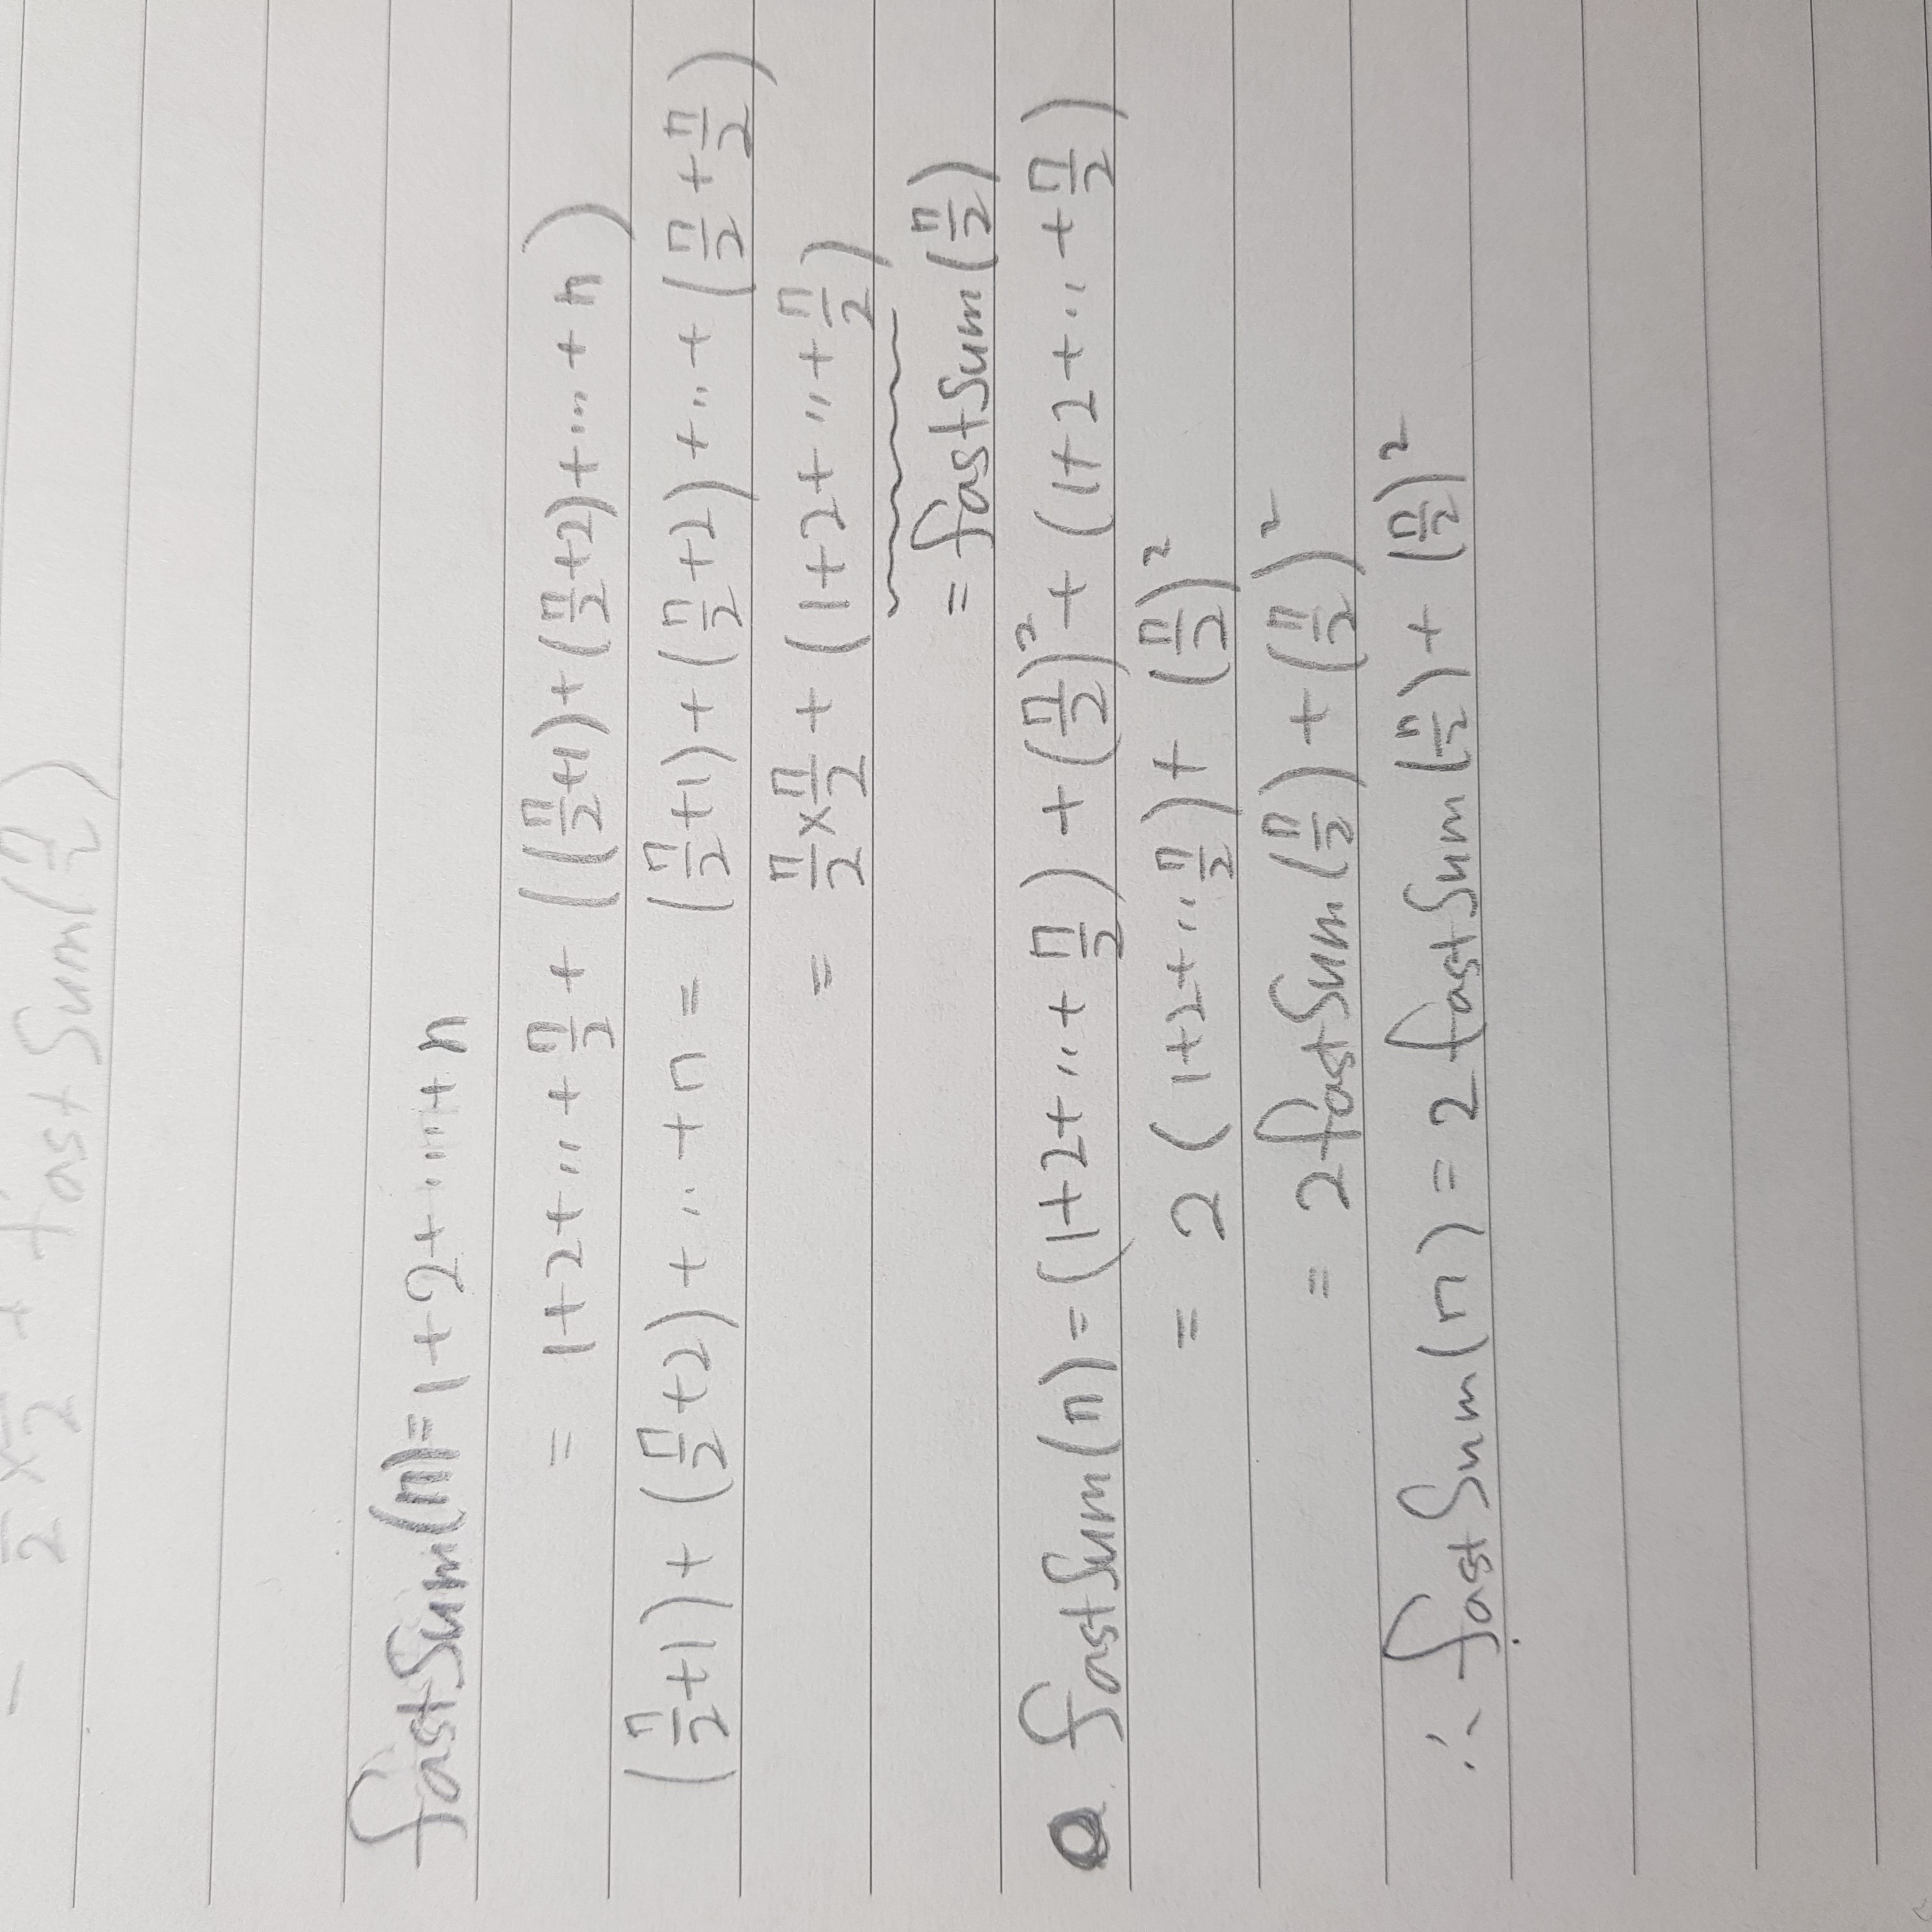 n/2 × n/2 + fastSum(n/2)
fastSum(n) = 1+2+····+n
= 1+2+··+ n/2 + ((n/2+1)+(n/2+2)+···+n)
(n/2+1)+(n/2+2)+··+n = (n/2+1)+(n/2+2)+··+(n/2+n/2)
= n/2×n/2 + (1+2+··+n/2)
= fastSum(n/2)
fastSum(n) = (1+2+··+n/2) + (n/2)² + (1+2+··+n/2)
= 2(1+2+··n/2) + (n/2)²
= 2fastSum(n/2) + (n/2)²
∴ fastSum(n) = 2fastSum(n/2) + (n/2)²